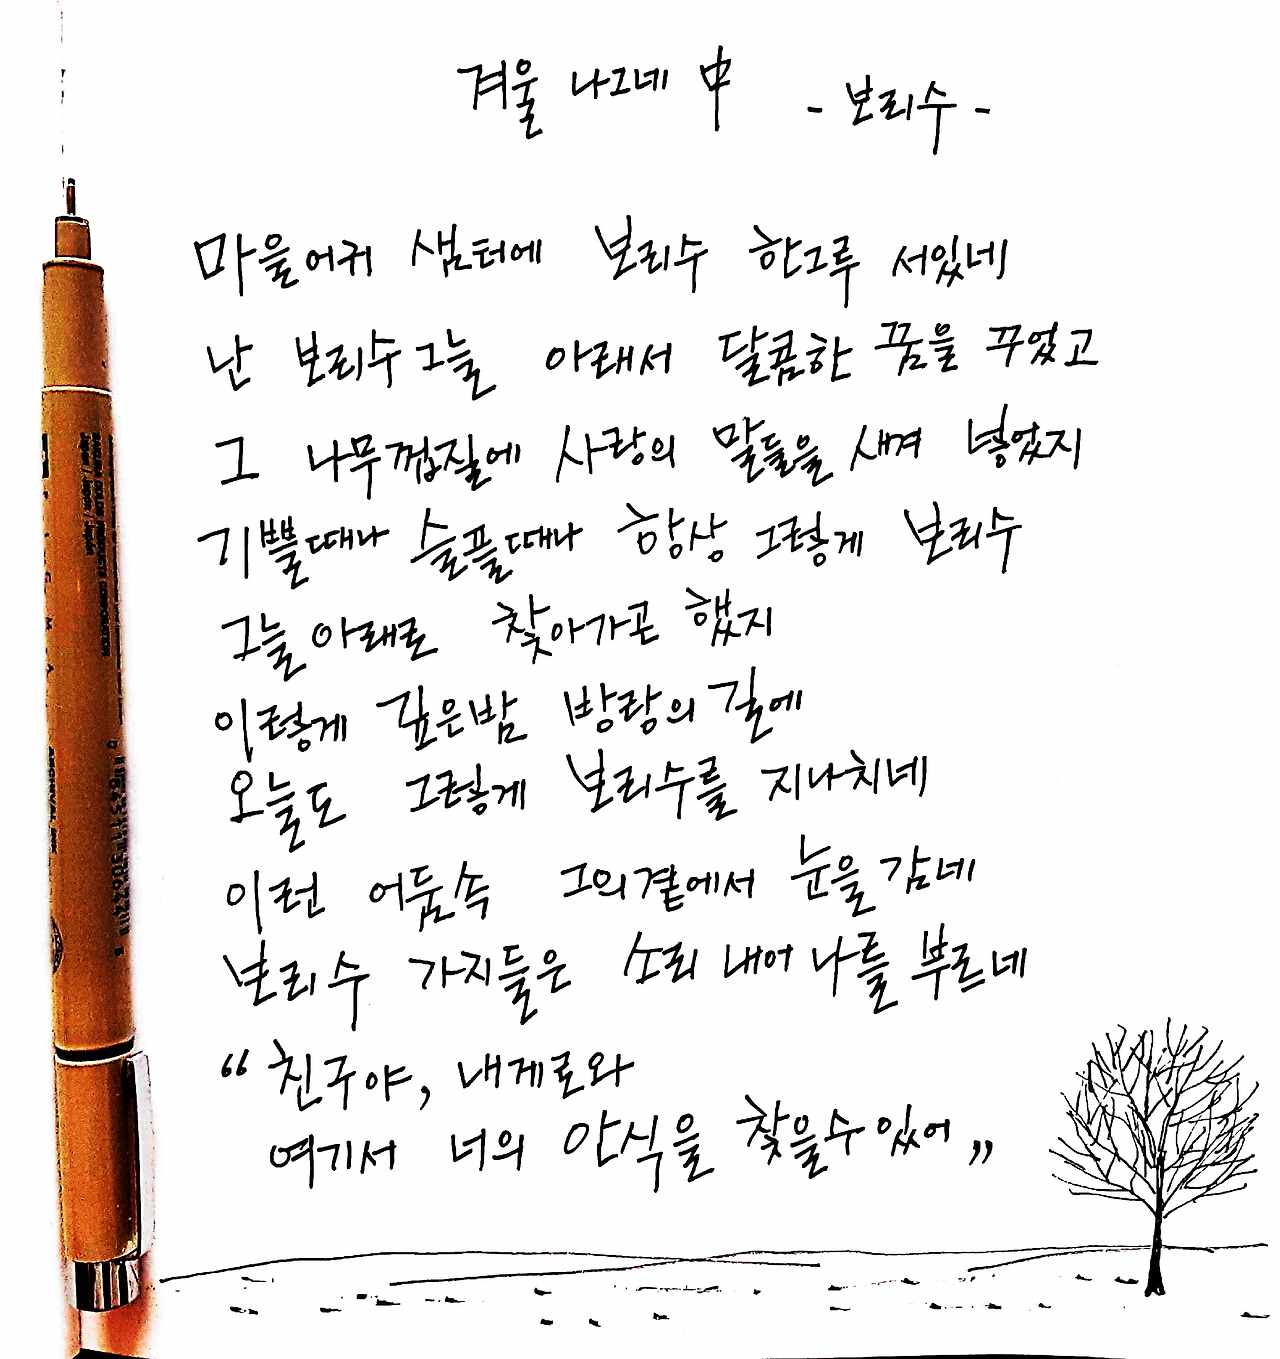 겨울 나그네 中 - 보리수 -
마을어귀 샘터에 보리수 한그루 서있네
난 보리수그늘 아래서 달콤한 꿈을 꾸었고
그 나무껍질에 사랑의 말들을 새겨 넣었지
기쁠때나 슬플때나 항상 그렇게 보리수
그늘 아래로 찾아가곤 했지
이렇게 깊은밤 방랑의 길에
오늘도 그렇게 보리수를 지나치네
이런 어둠속 그의곁에서 눈을 감네
보리수 가지들은 소리 내어 나를 부르네
“ 친구야, 내게로와
여기서 너의 안식을 찾을수 있어 ”